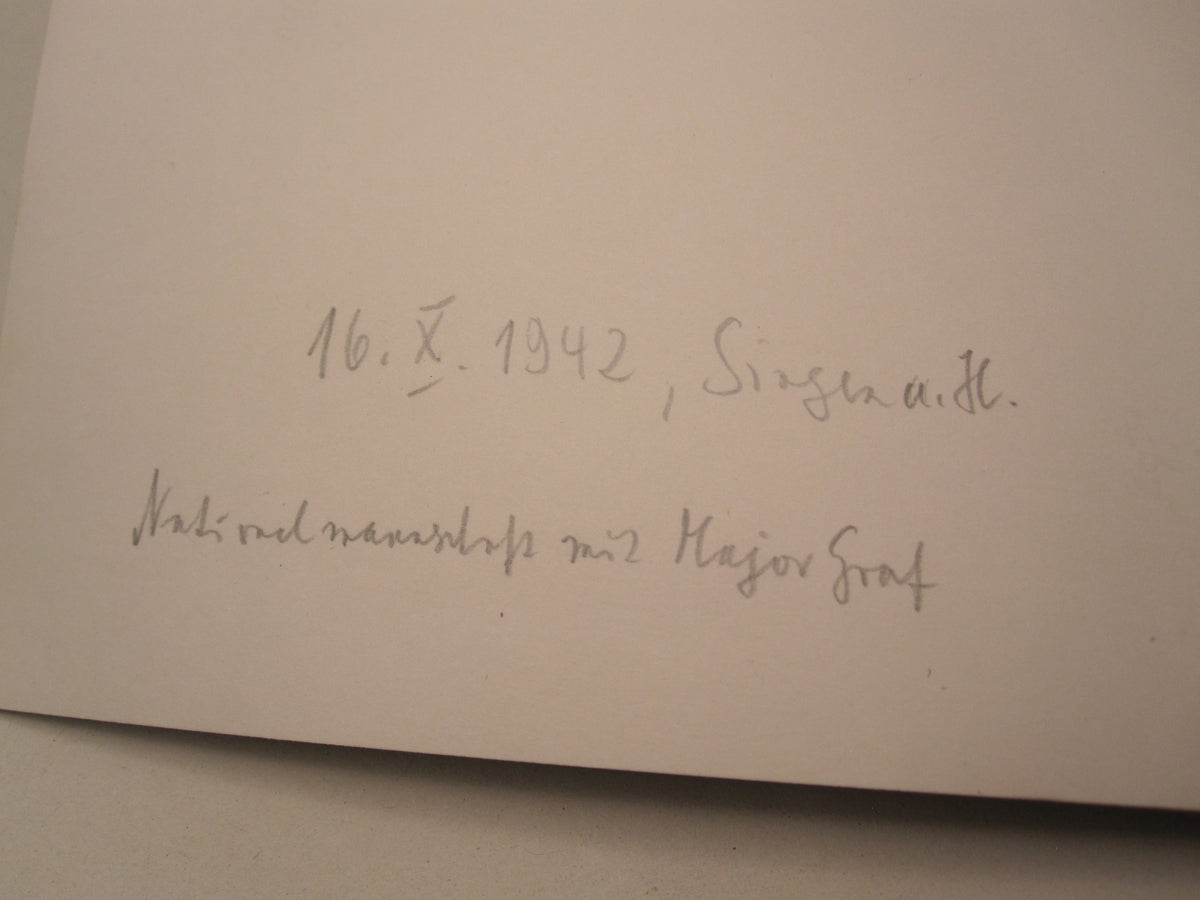 16. X. 1942, Singen a. H.
Nationalmannschaft mit Major Graf